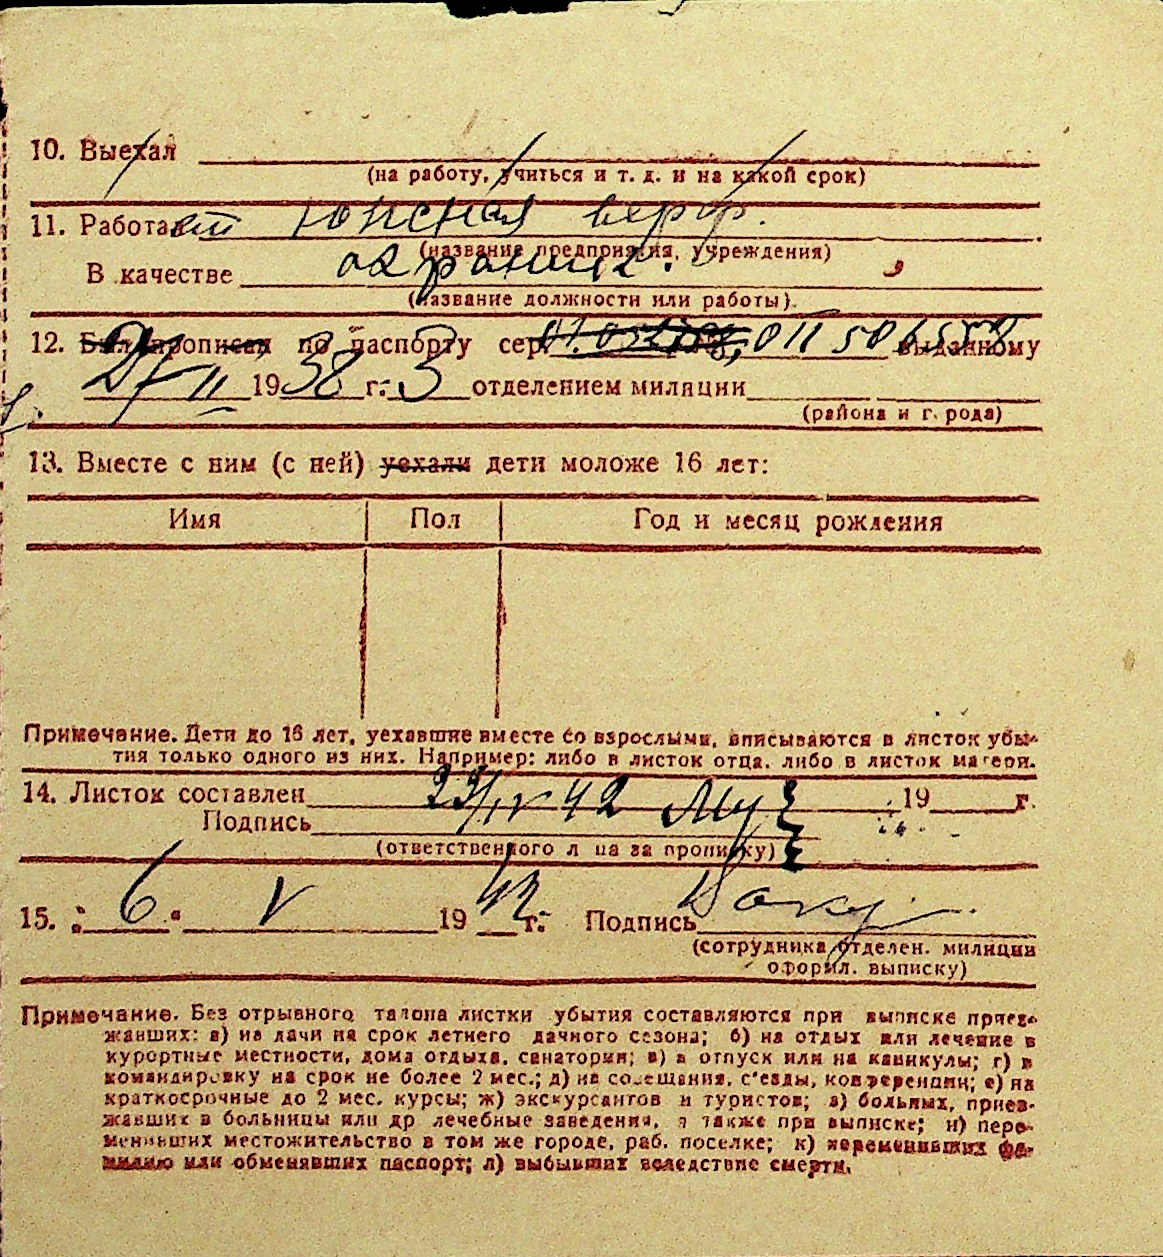 10. Выехал
(на работу, учиться и т. д. и на какой срок)
11. Работает
(название предприятия, учреждения)
В качестве
(название должности или работы).
12. Был прописан по паспорту сер. 011 506558 выданному
II 1938 г. 3 отделением милиции
(района и г. рода)
13. Вместе с ним (с ней) уехали дети моложе 16 лет:
Имя Пол Год и месяц рождения
Примечание. Дети до 16 лет, уехавшие вместе со взрослыми, вписываются в листок убы-
тия только одного из них. Например: либо в листок отца, либо в листок матери.
14. Листок составлен 23/IV 42 19 г.
Подпись
(ответственного л ца за прописку)
15. „6“ V 1942 г. Подпись
(сотрудника отделен. милиции
оформл. выписку)
Примечание. Без отрывного талона листки убытия составляются при выписке приез-
жавших: а) на дачи на срок летнего дачного сезона; б) на отдых или лечение в
курортные местности, дома отдыха, санатории; в) в отпуск или на каникулы; г) в
командировку на срок не более 2 мес.; д) на совещания, с'езды, конференции; е) на
краткосрочные до 2 мес. курсы; ж) экскурсантов и туристов; з) больных, приез-
жавших в больницы или др лечебные заведения, а также при выписке; и) пере-
менивших местожительство в том же городе, раб. поселке; к) переменивших фа-
милию или обменявших паспорт; л) выбывших вследствие смерти.